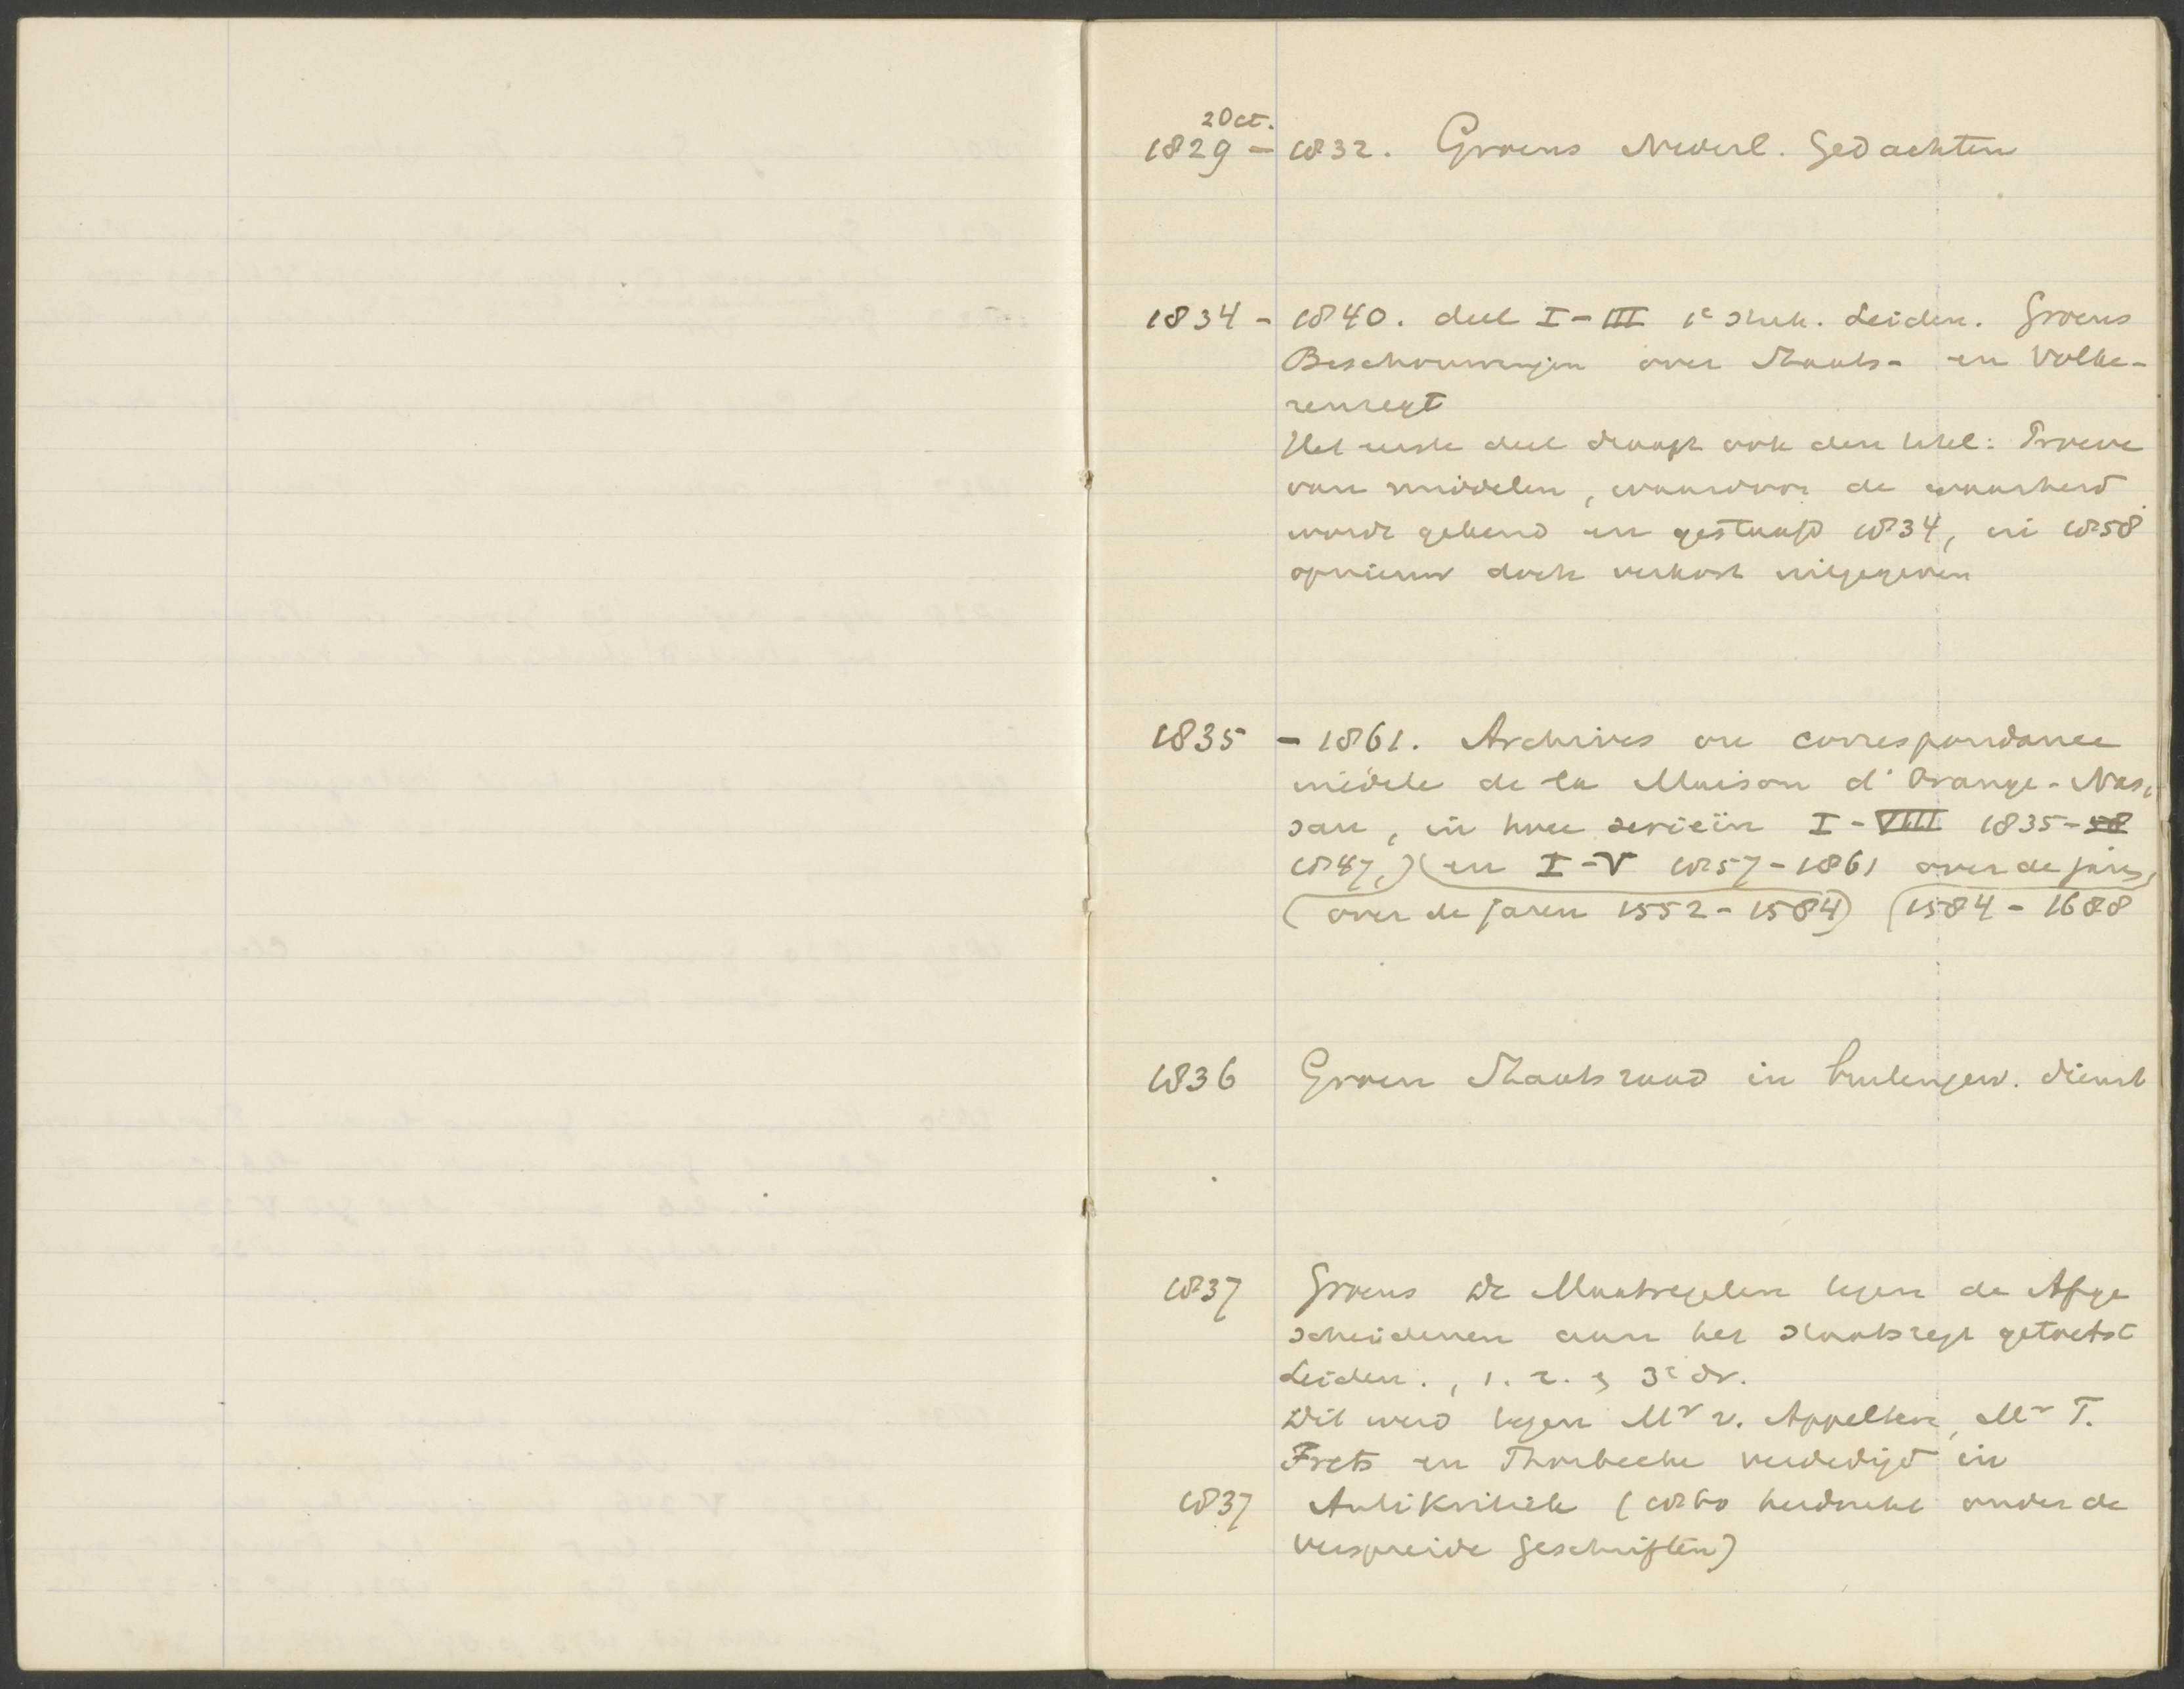 2 Oct.
1829 - 1832. Groens Nederl. Gedachten
1834 - 1840. deel I - III 1e stuk. Leiden. Groens
Beschouwingen over Staats- en Volke-
renregt
Het eerste deel draagt ook den titel: Proeve
van middelen, waardoor de waarheid
wordt gekend en gestaafd 1834, in 1858
opnieuw doch verkort uitgegeven
1835 - 1861. Archives ou correspondance
inédite de la Maison d'Orange-Nas-
sau, in twee serieën I - VIII 1835-58
1847,) (en I - V 1857 - 1861 over de jaren
(over de jaren 1552 - 1584) (1584 - 1688
1836 Groen Staatsraad in buitengew. dienst
1837 Groens De Maatregelen tegen de Afge
scheidenen aan het staatsregt getoetst
Leiden., 1. 2. & 3e dr.
Dit werd tegen Mr v. Appeltere, Mr T.
Frets en Thorbecke verdedigd in
1837 AntiKritiek (1860 herdrukt onder de
verspreide Geschriften)